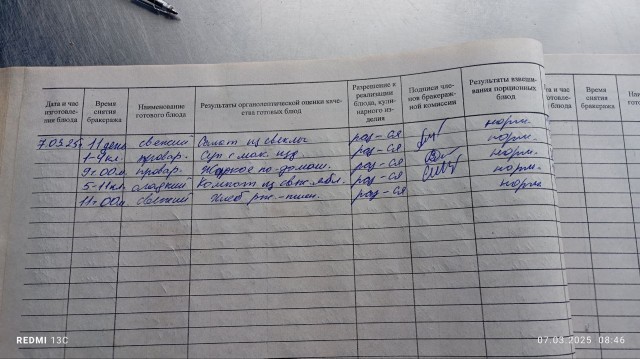 Дата и час изготовле-ния блюда | Время снятия бракеража | Наименование готового блюда | Результаты органолептической оценки каче-ства готовых блюд | Разрешение к реализации блюда, кули-нарного из-делия | Подписи чле-нов бракераж-ной комиссии | Результаты взвеши-вания порционных блюд
7.03.25г 11 день свежий Салат из свеклы раз-ся норм.
1-4 кл. провар. Суп с мак. изд. раз-ся норм.
9:00 провар. Жаркое по-домаш. раз-ся норм.
5-11 кл. сладкий Компот из свеж. ябл. раз-ся норм.
11:00 свежий Хлеб рж.-пшен. раз-ся норм.
REDMI 13C
07.03.2025 08:46